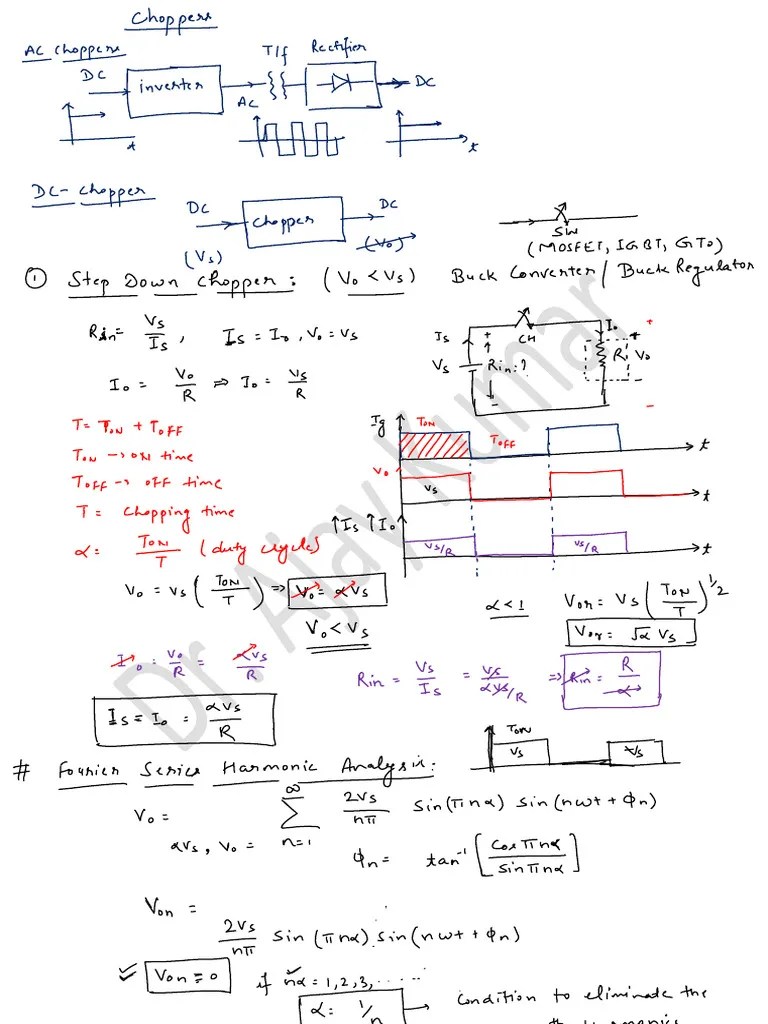 Choppers
AC Choppers
T/f Rectifier
DC inverter AC DC
t
t
DC-Chopper
DC chopper DC
(Vs) (Vo)
SW
(MOSFET, IGBT, GTO)
① Step Down Chopper: (Vo < Vs) Buck Converter / Buck Regulator
Rin = Vs/Is, Is = Io, Vo = Vs
Is Vs + - Rin=? CH Io R Vo + -
Io = Vo/R ⇒ Io = Vs/R
T = TON + TOFF
TON → on time
TOFF → off time
T = Chopping time
α = TON/T (duty cycle)
Ig TON TOFF t
Vo Vs t
↑Is ↑Io Vs/R Vs/R t
Vo = Vs (TON/T) ⇒ Vo = αVs
Vo < Vs
α < 1 Vor = Vs (TON/T)^1/2
Vor = √α Vs
Io = Vo/R = αVs/R
Rin = Vs/Is = Vs/αVs/R ⇒ Rin = R/α
Is = Io = αVs/R
TON
Vs Vs
# Fourier Series Harmonic Analysis:
Vo = αVs, Vo = ∞ Σ n=1 2Vs/nπ sin(πnα) sin(nωt + ϕn)
ϕn = tan⁻¹ [cosπnα/sinπnα]
Von = 2Vs/nπ sin(πnα) sin(nωt + ϕn)
Von = 0 if nα = 1,2,3,.....
α = 1/n → Condition to eliminate the
Dr. Ajay Kumar